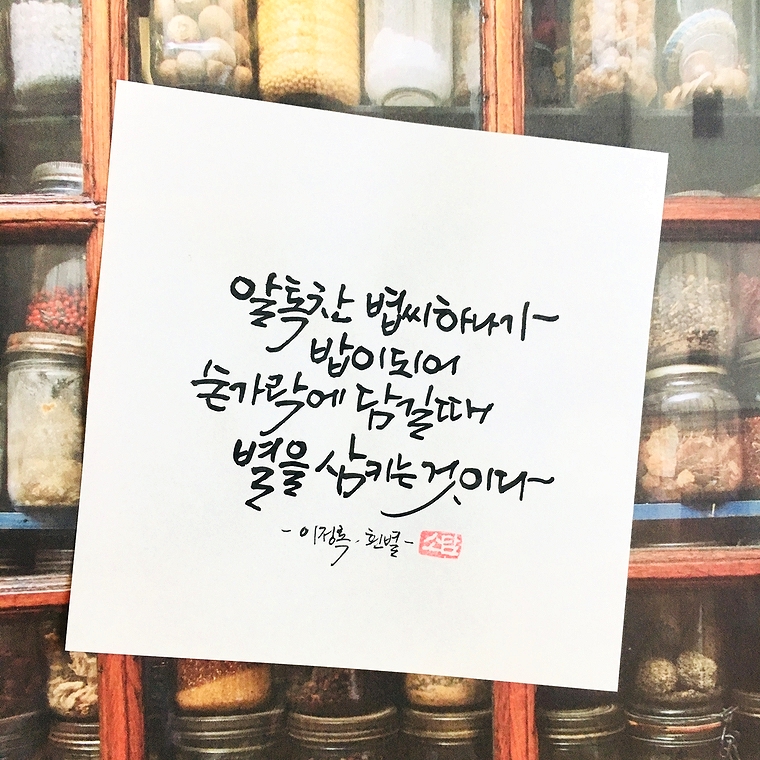 알톡찬 볍씨하나가~
밥이되어
숟가락에 담길때
별을 삼키는것이다~
- 이정록. 흰별 -